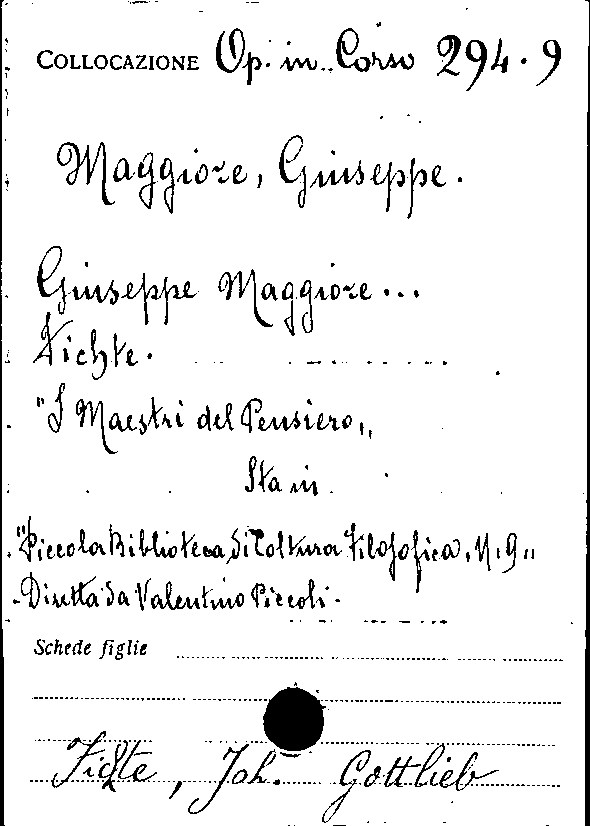 COLLOCAZIONE Op. in Corso 294.9
Maggiore, Giuseppe.
Giuseppe Maggiore...
Fichte.
"I Maestri del Pensiero,,
Sta in
"Piccola Biblioteca di Coltura Filosofica, N. 9,,
Diretta da Valentino Piccoli.
Schede figlie
Fichte, Joh. Gottlieb